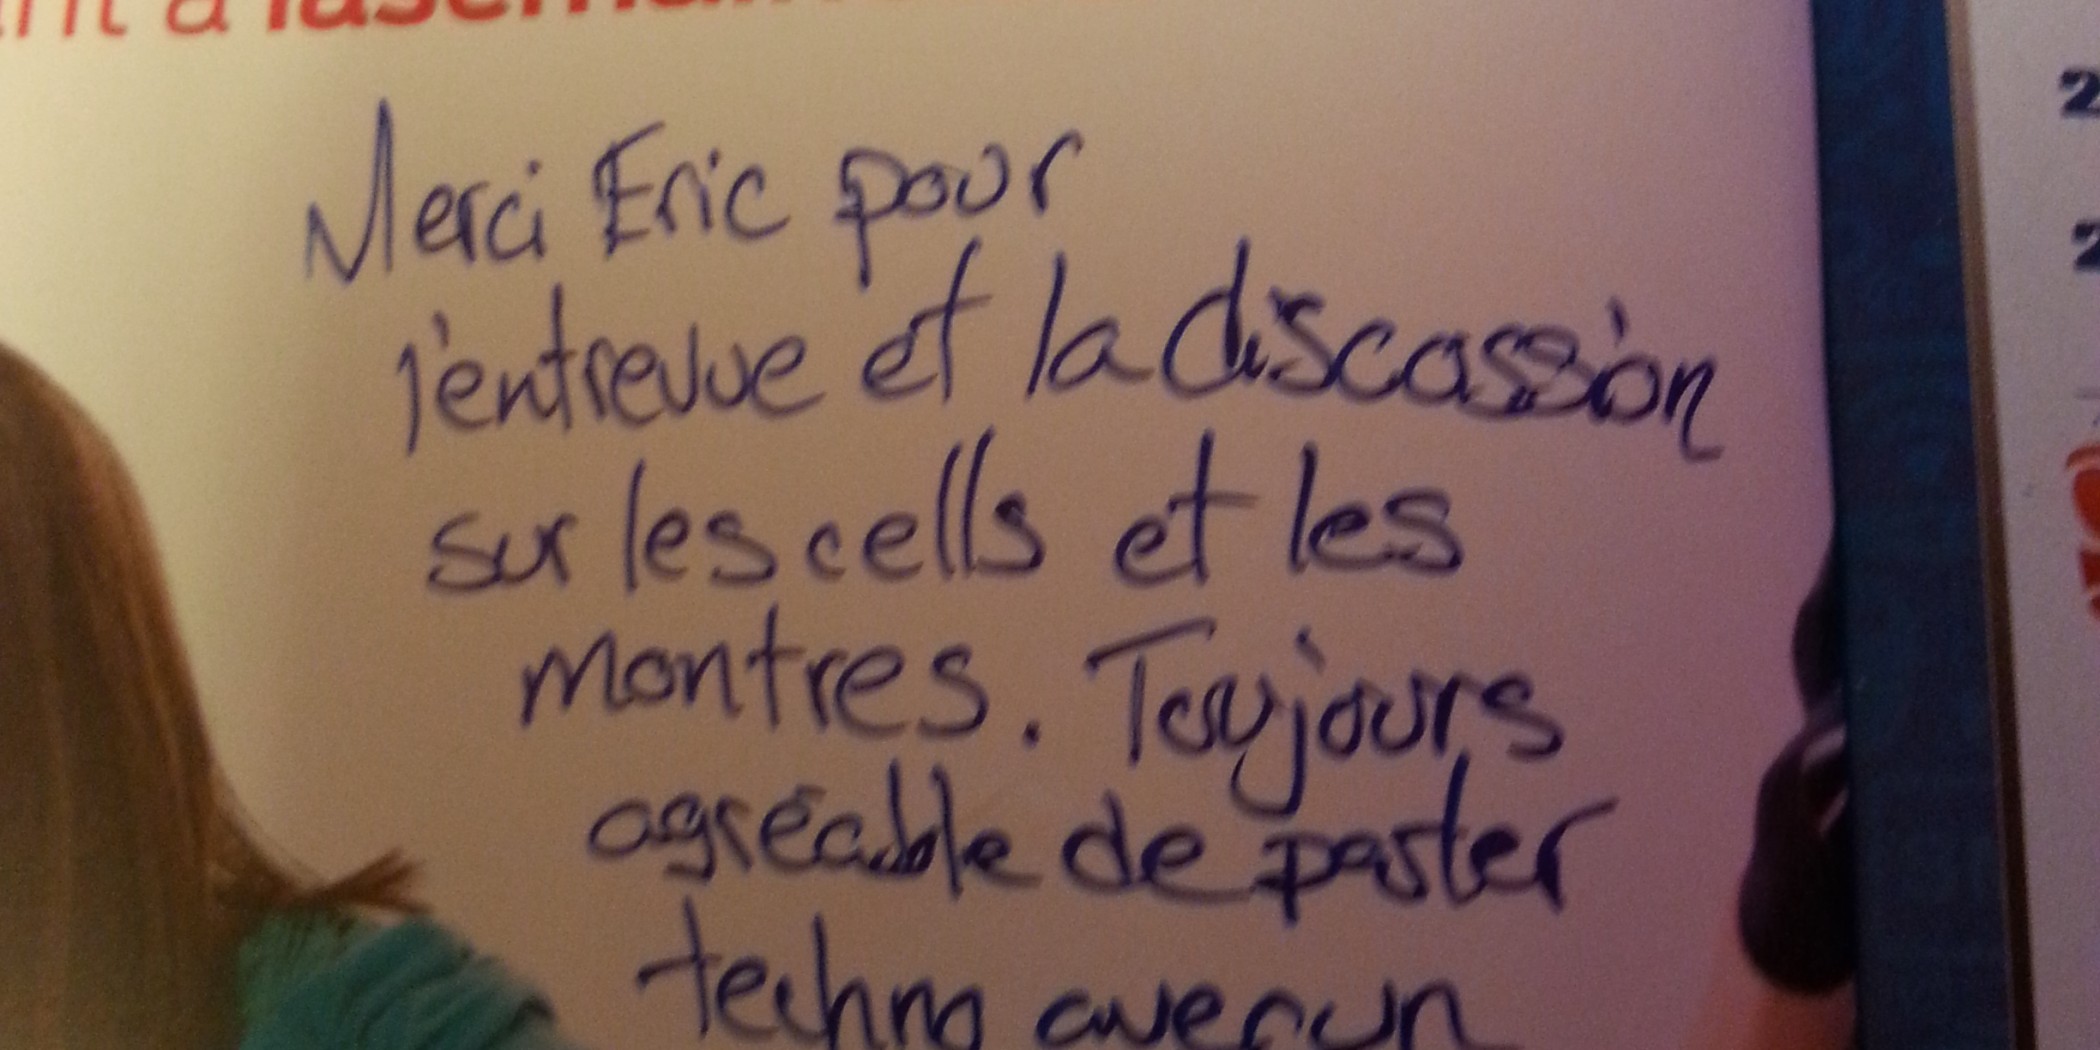 à lasemain
Merci Eric pour
j'entrevue et la discussion
sur les cells et les
montres. Toujours
agréable de parler
techno avec un
2
2